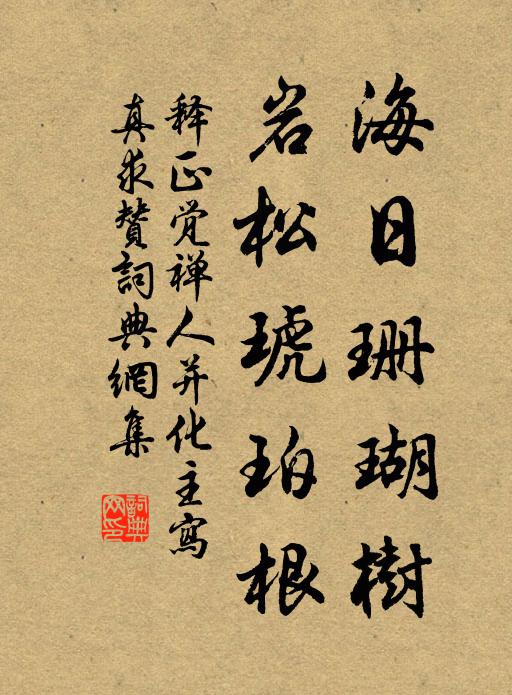 海日珊瑚樹
岩松琥珀根
释正觉禅人并化主寫
真求贊詞典網集
詞典網印